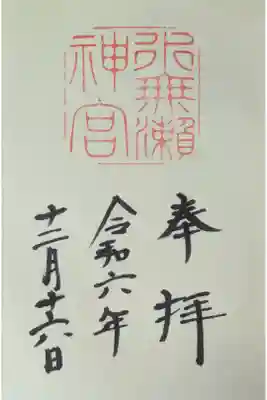 水無瀬
神宮
奉拝
令和六年
十二月十六日